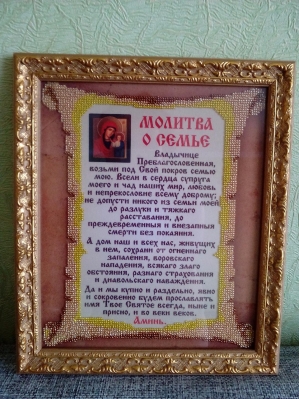 МОЛИТВА
О СЕМЬЕ
Владычице
Преблагословенная,
возьми под Свой покров семью
мою. Всели в сердца супруга
моего и чад наших мир, любовь
и непрекословие всему доброму;
не допусти никого из семьи моей
до разлуки и тяжкаго
расставания, до
преждевременныя и внезапныя
смерти без покаяния.
А дом наш и всех нас, живущих
в нем, сохрани от огненнаго
запаления, воровскаго
нападения, всякаго злаго
обстояния, разнаго страхования
и диавольскаго наваждения.
Да и мы купно и раздельно, явно
и сокровенно будем прославлять
имя Твое Святое всегда, ныне и
присно, и во веки веков.
Аминь.